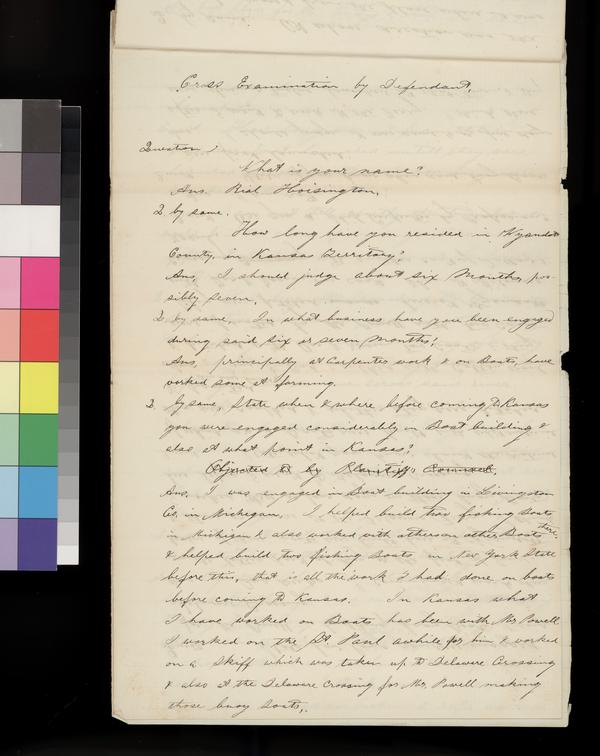 Cross Examination by Defendant.
Question,
What is your name?
Ans. Rial Hoisington.
Q by same.
How long have you resided in Wyandott
County, in Kansas Territory?
Ans, I should judge about six Months, pos-
sibly seven.
Q by same, In what business have you been engaged
during said six or seven Months?
Ans, principally at Carpenter work & on Boats, have
worked some at farming.
Q by same, State when & where before coming to Kansas
you were engaged considerably in Boat building &
also at what point in Kansas?
Objected to by Plaintiffs Counsel.
Ans, I was engaged in Boat building in Livingston
Co, in Michigan, I helped build two fishing boats
in Michigan & also worked with others on other Boats there.
& helped build two fishing boats in New York State
before this, that is all the work I had done on boats
before coming to Kansas. In Kansas what
I have worked on Boats has been with Mr Powell
I worked on the St. Paul awhile for him & worked
on a Skiff which was taken up to Delaware Crossing
& also at the Delaware Crossing for Mr, Powell making
those buoy boats,.